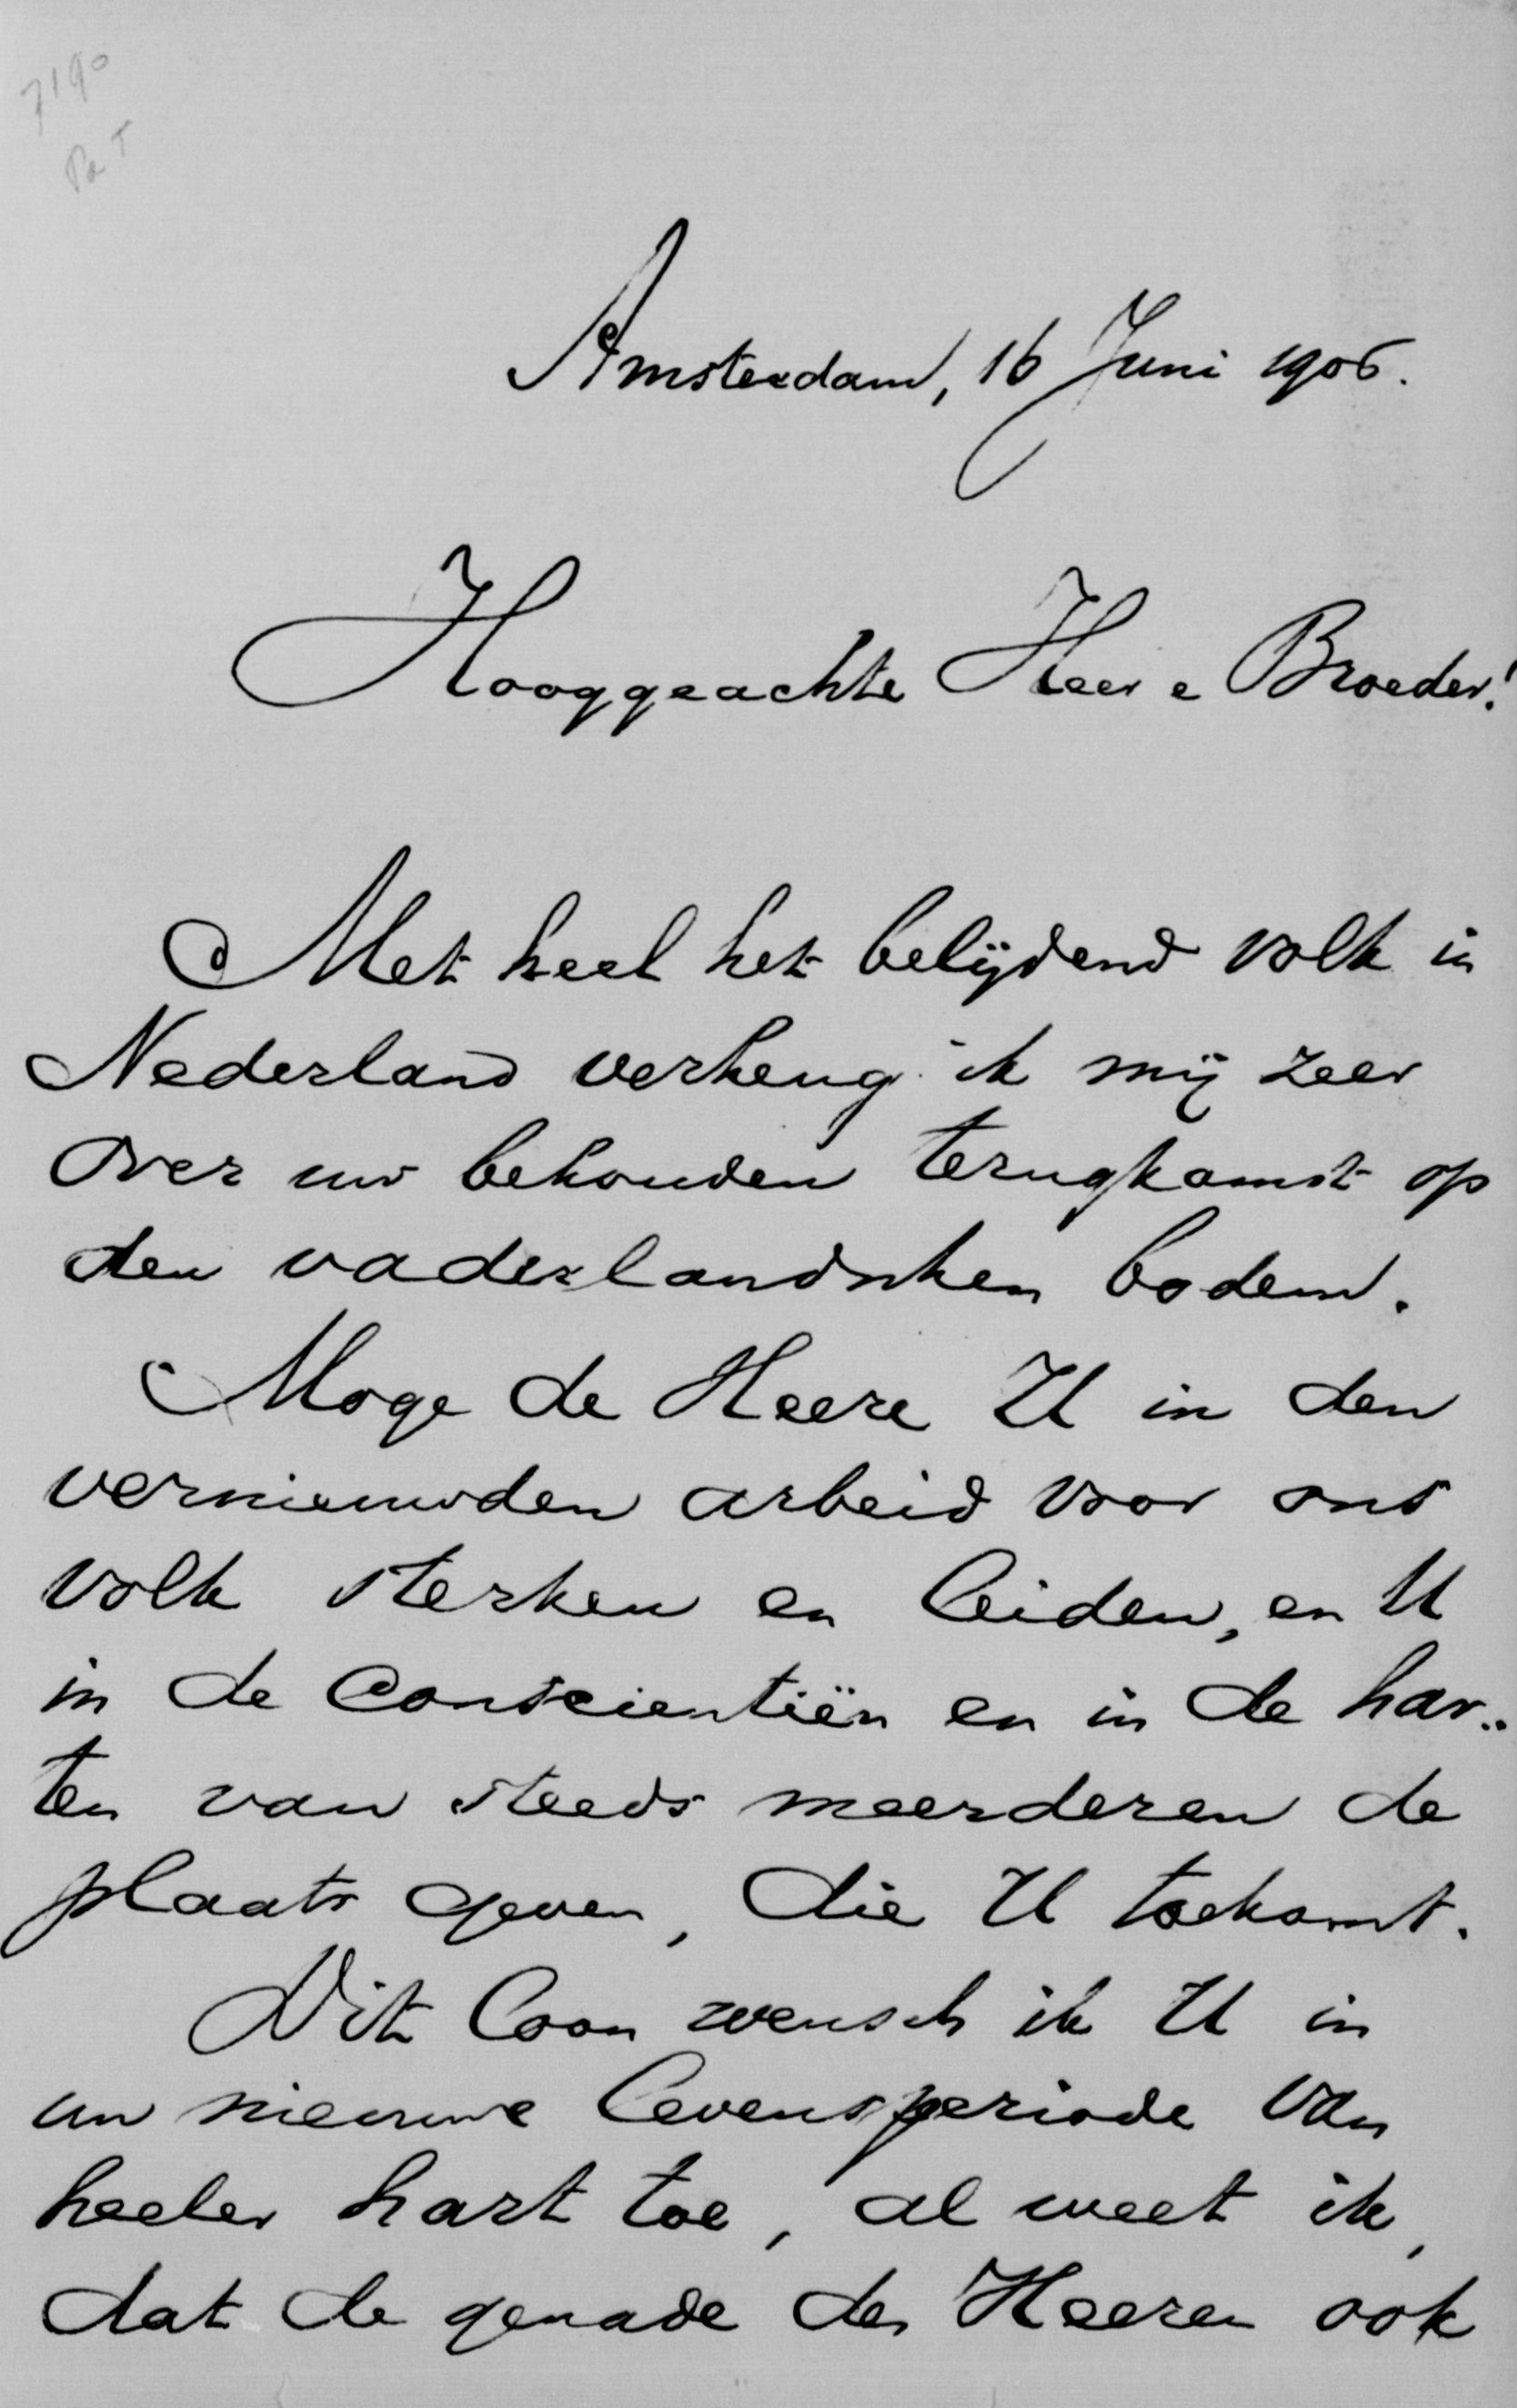 7190
Amsterdam, 16 Juni 1906.
Hooggeachte Heer e Broeder!
Met heel het belijdend volk in
Nederland verheug ik mij zeer
over uw behouden terugkomst op
den vaderlandschen bodem.
Moge de Heere U in den
vernieuwden arbeid voor ons
volk sterken en leiden, en U
in de conscientiën en in de har-
ten van steeds meerderen de
plaats geven, die U toekomt.
Dit loon wensch ik U in
uw nieuwe levensperiode van
heeler hart toe, al weet ik,
dat de genade des Heeren ook